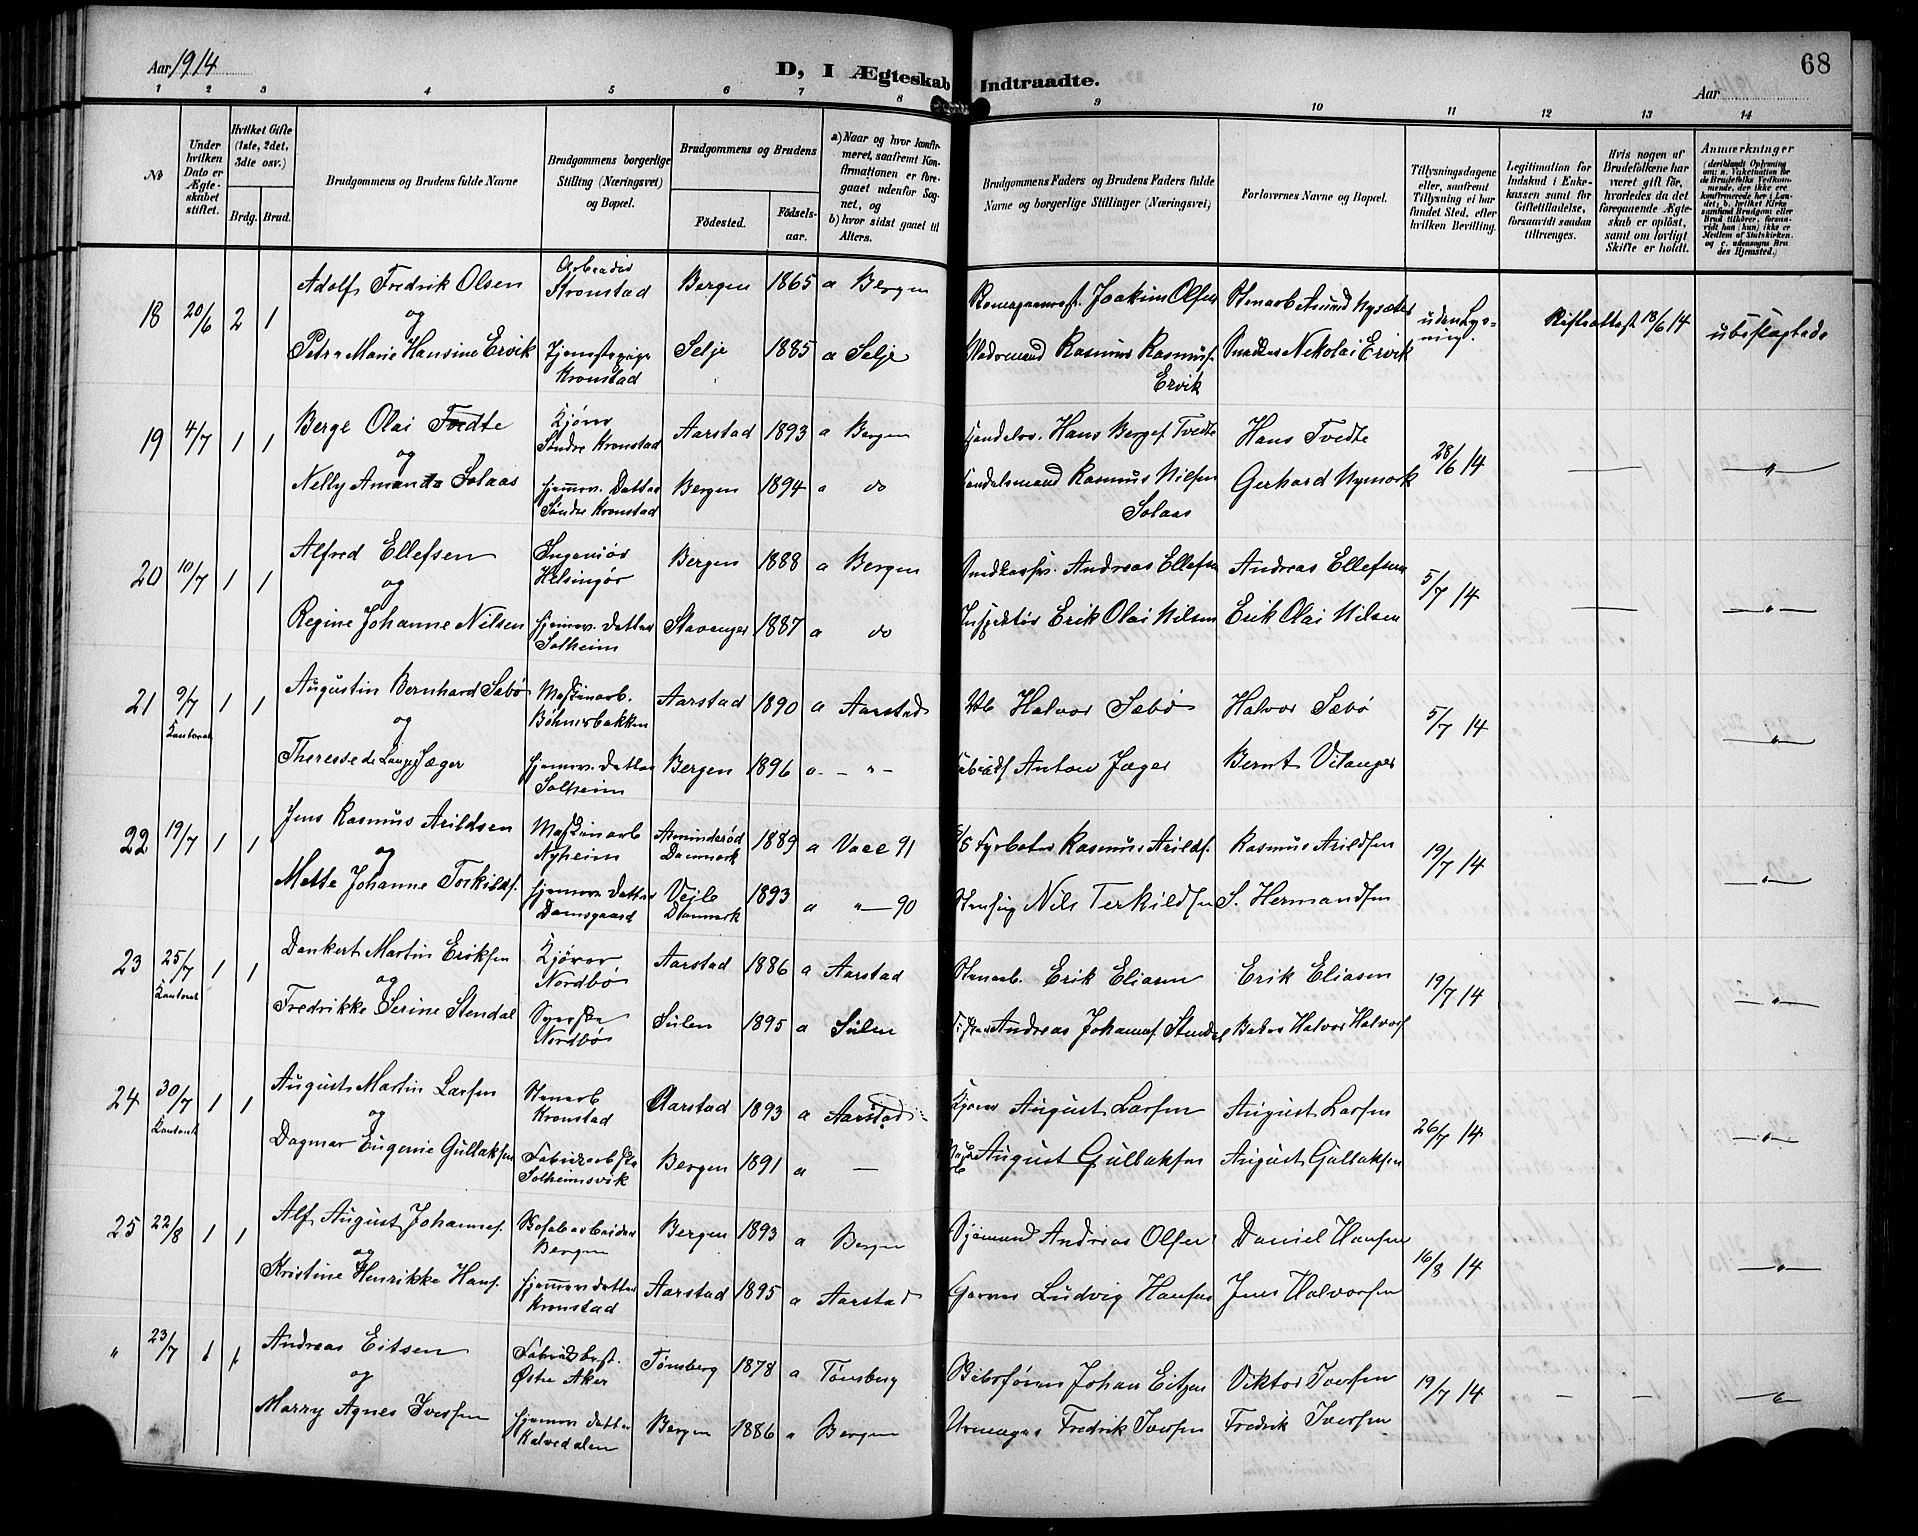 Aar 1914
D, I Ægteskab Indtraadte.
68
Aar
1 2 3 4 5 6 7 8 9 10 11 12 13 14
№
Under hvilken Dato er Ægteskabet stiftet.
Hvilket Gifte (1ste, 2det, 3die osv.)
Brdg. Brud.
Brudgommens og Brudens fulde Navne
Brudgommens borgerlige Stilling (Næringsvei) og Bopæl.
Brudgommens og Brudens
Födested.
Födselsaar.
a) Naar og hvor konfirmeret, saafremt Konfirmationen er foregaaet udenfor Sognet, og
b) hvor sidst gaaet til Alters.
Brudgommens Faders og Brudens Faders fulde Navne og borgerlige Stillinger (Næringsvei)
Forlovernes Navne og Bopæl.
Tillysningsdagene eller, saafremt Tillysning ei har fundet Sted, efter hvilken Bevilling.
Legitimation for Indskud i Enkekassen samt for Giftetilladelse, forsaavidt saadan tiltrænges.
Hvis nogen af Brudefolkene har været gift för, hvorledes da det foregaaende Ægteskab er oplöst, samt om lovligt Skifte er holdt.
Anmærkninger
18 20/6 2 1 Adolf Fredrik Olsen Arbeider Kronstad Bergen 1865 a Bergen Joakim Olsen
og
Petra Marie Hansine Ervik Tjenestepige Kronstad Selje 1885 a Selje Rasmus Rasmus. Ervik Nikolai Ervik
uden Lysning. Skifteattest 13/6 14 ubeslægtede
19 4/7 1 1 Berge Olai Tvedte Kjører Søndre Kronstad Aarstad 1893 a Bergen Hans Berges. Tvedte Hans Tvedte 28/6 14 — "
og
Nelly Amanda Solaas hjemmv. Datter Søndre Kronstad Bergen 1894 a do Handelsmand Rasmus Nilsen Solaas Gerhard Nymark
20 10/7 1 1 Alfred Ellefsen Ingeniør Helsingør Bergen 1888 a Bergen Andreas Ellefsen Andreas Ellefsen 5/7 14 — "
og
Regine Johanne Nilsen hjemmv. Datter Solheim Stavanger 1887 a do Inspektør Erik Olai Nilsen Erik Olai Nilsen
21 9/7 Kontoret 1 1 Augustin Bernhard Sæbø Maskinarb. Böhnerbakken Aarstad 1890 a Aarstad Halvor Sæbø Halvor Sæbø 5/7 14 "
og
Therese de Lange Jæger hjemmv. Datter Solheim Bergen 1896 a — " — Anton Jæger Bernt
22 19/7 1 1 Jens Rasmus Arildsen Maskinarb Nyheim Asminderød Danmark 1889 a Vacc 91 Fyrbøter Rasmus Arilds. Rasmus Arildsen 19/7 14 "
og
Mette Johanne Torkilds. hjemmv. Datter Damsgaard Vejle Danmark 1893 a " — 90 Nils Terkildsen S. Hermandsen
23 25/7 Kontoret 1 1 Dankert Martin Eriksen Kjører Nordbø Aarstad 1886 a Aarstad Stenarb. Erik Eliasen Erik Eliasen 19/7 14 "
og
Fredrikke Serine Stendal Syerske Nordbø Sulen 1895 a Sulen Fisker Andreas Johannes. Stendal Baker Halvor Halvors.
24 30/7 Kontoret 1 1 August Martin Larsen Stenarb Kronstad Aarstad 1893 a Aarstad Kjører August Larsen August Larsen 26/7 14 "
og
Dagmar Eugenie Gullaksen Fabrikarbske Solheimsvik Bergen 1891 a — August Gullaksen August Gullaksen
25 22/8 1 1 Alf August Johannes. Bergen Bergen 1893 a Bergen Sjømand Andreas Olsen Daniel Hansen 16/8 14 "
og
Kristine Henrikke Hans. hjemmv datter Kronstad Aarstad 1895 a Aarstad Garver Ludvig Hansen Jens Halvorsen
" 23/7 1 1 Andreas Eitsen Fabrikbest. Østre Aker Tønsberg 1878 a Tønsberg Skibsfører Johan Eitzen Viktor Iversen 19/7 14 — — "
og
Marry Agnes Iversen hjemmv Datter Kalvedalen Bergen 1886 a Bergen Urmager Fredrik Iversen Fredrik Iversen